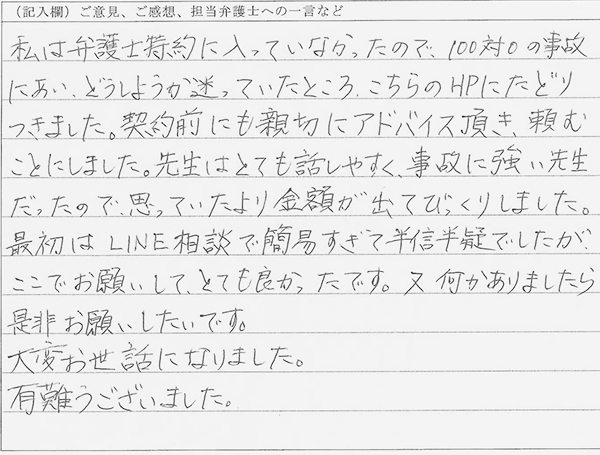 （記入欄）ご意見、ご感想、担当弁護士への一言など
私は弁護士特約に入っていなかったので、100対0の事故
にあい、どうしようか迷っていたところ、こちらのHPにたどり
つきました。契約前にも親切にアドバイス頂き、頼む
ことにしました。先生はとても話しやすく、事故に強い先生
だったので、思っていたより金額が出てびっくりしました。
最初はLINE相談で簡易すぎて半信半疑でしたが、
ここでお願いして、とても良かったです。又何かありましたら
是非お願いしたいです。
大変お世話になりました。
有難うございました。